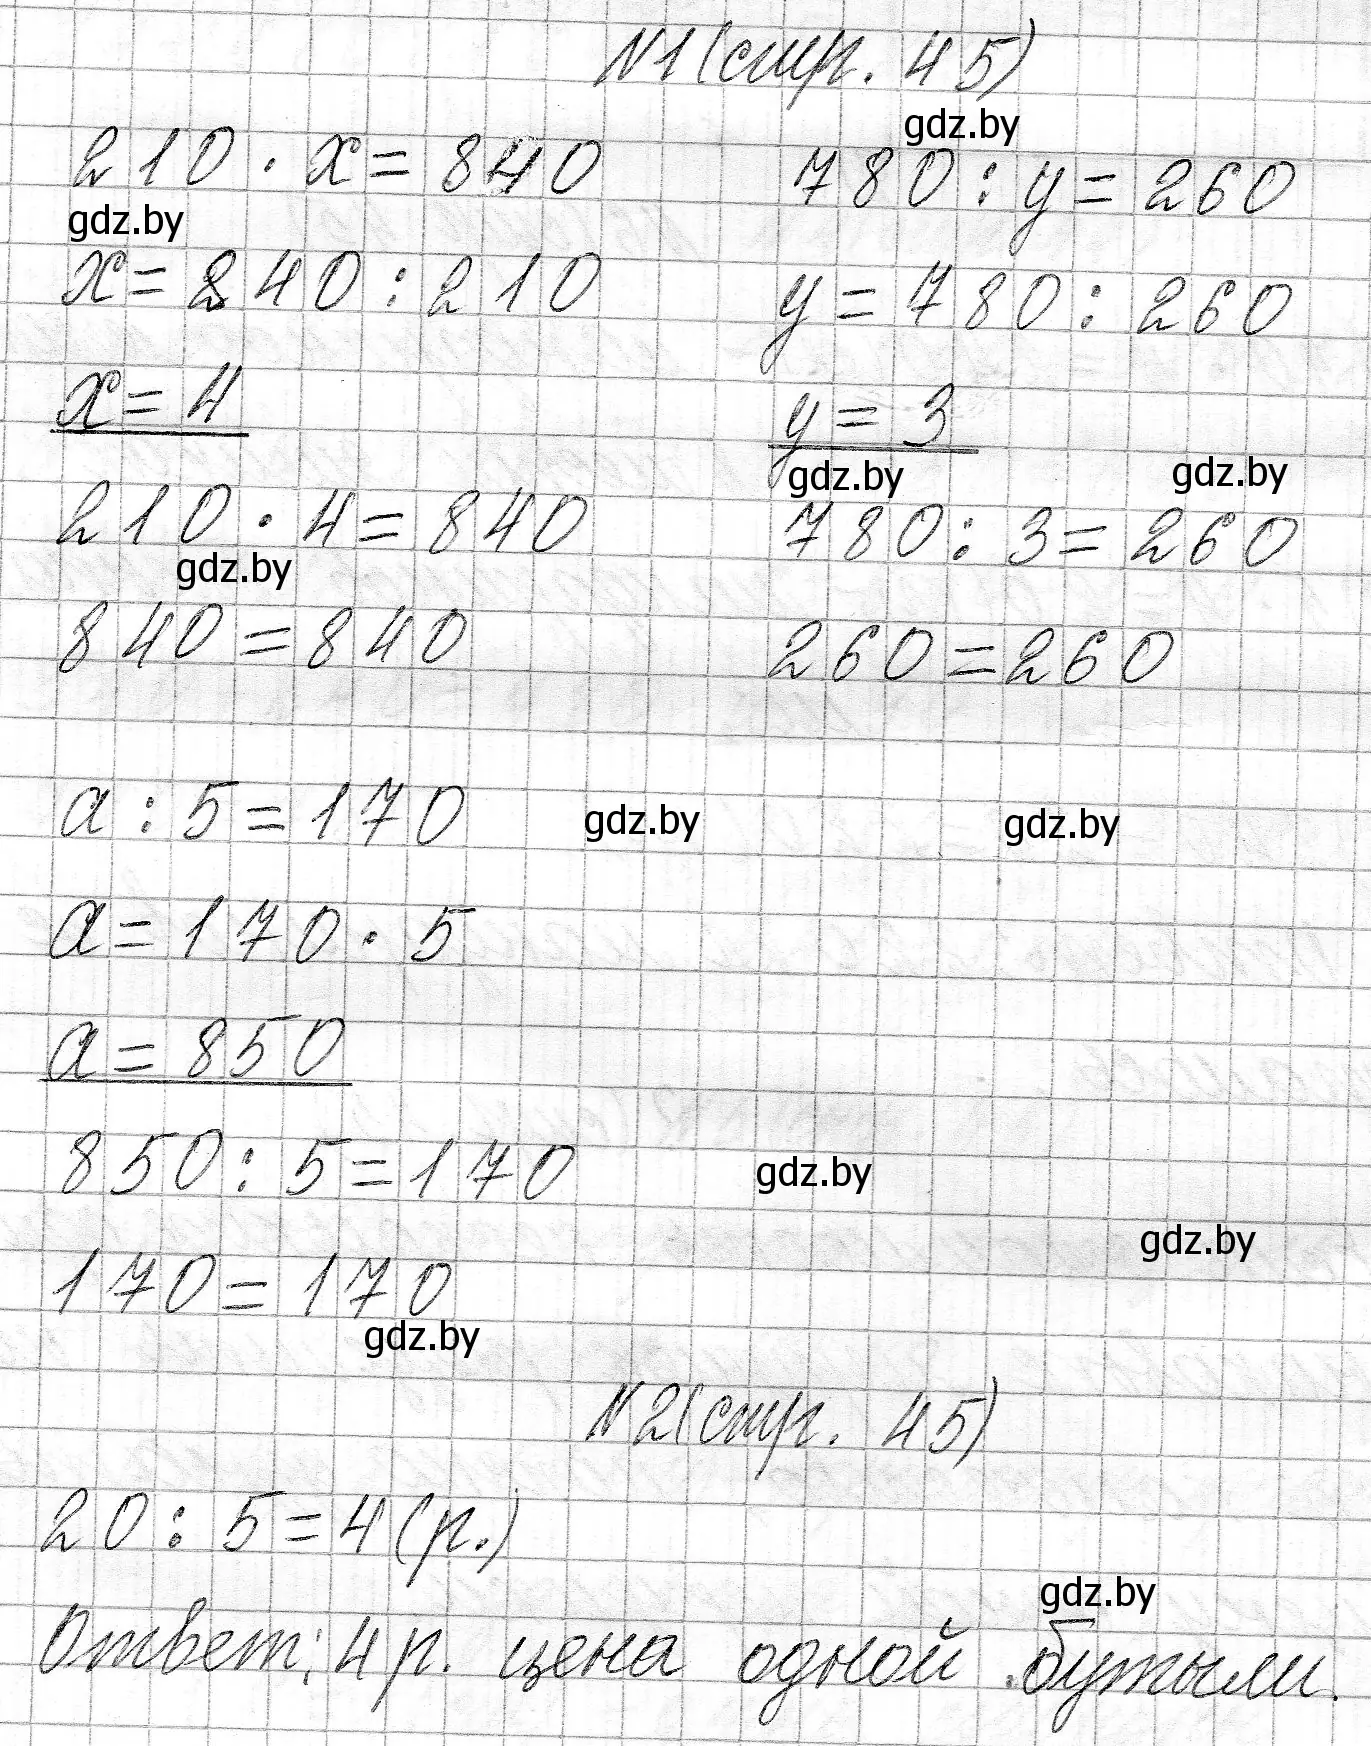 №1 (стр. 45)
gdz.by
210 · x = 840
gdz.by
x = 840 : 210
x = 4
210 · 4 = 840
gdz.by
840 = 840
780 : y = 260
y = 780 : 260
y = 3
gdz.by
gdz.by
780 : 3 = 260
260 = 260
a : 5 = 170
gdz.by
gdz.by
a = 170 · 5
a = 850
850 : 5 = 170
gdz.by
gdz.by
170 = 170
gdz.by
№2 (стр. 45)
20 : 5 = 4 (р.)
gdz.by
Ответ: 4 р. цена одной бутыли.